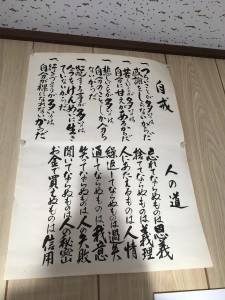 自戒
一つらいことが多いのは
感謝をしらないからだ
一苦しいことが多いのは
自分に甘えがあるからだ
一悲しいことが多いのは
自分のことしか分から
ないからだ
一心配することが多いのは
今をけんめいに生き
ていないからだ
一行きづまりが多いのは
自分が裸になれないからだ
人の道
忘れてならぬものは恩義
捨ててならぬものは義理
人にあたえるものは人情
繰返してならぬものは過失
通してならぬものは我意
笑ってならぬものは人の失敗
聞いてならぬものは人の秘密
お金で買えぬものは信用